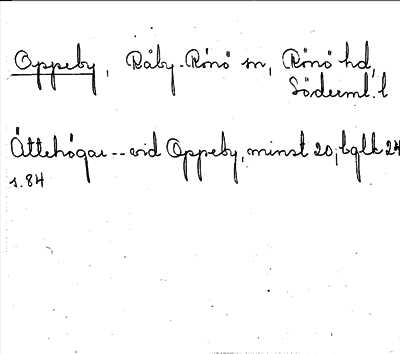 Oppeby, Råby-Rönö sn, Rönö hd,
Söderml. l
Ättehögar -- vid Oppeby, minst 20; bglk 24
s. 84